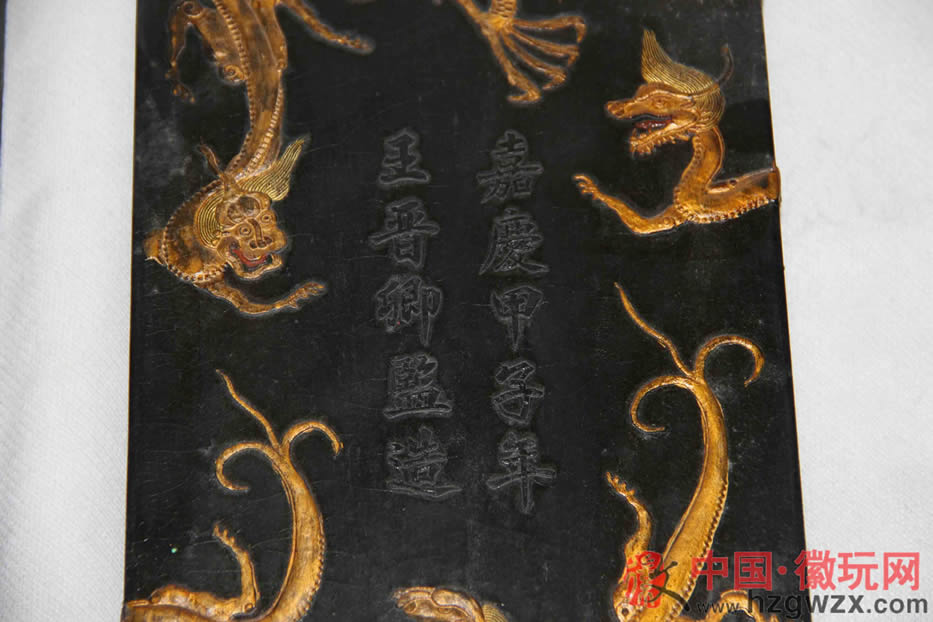 嘉慶甲子年
王晉卿監造
中国·徽玩网
www.hzgwzx.com